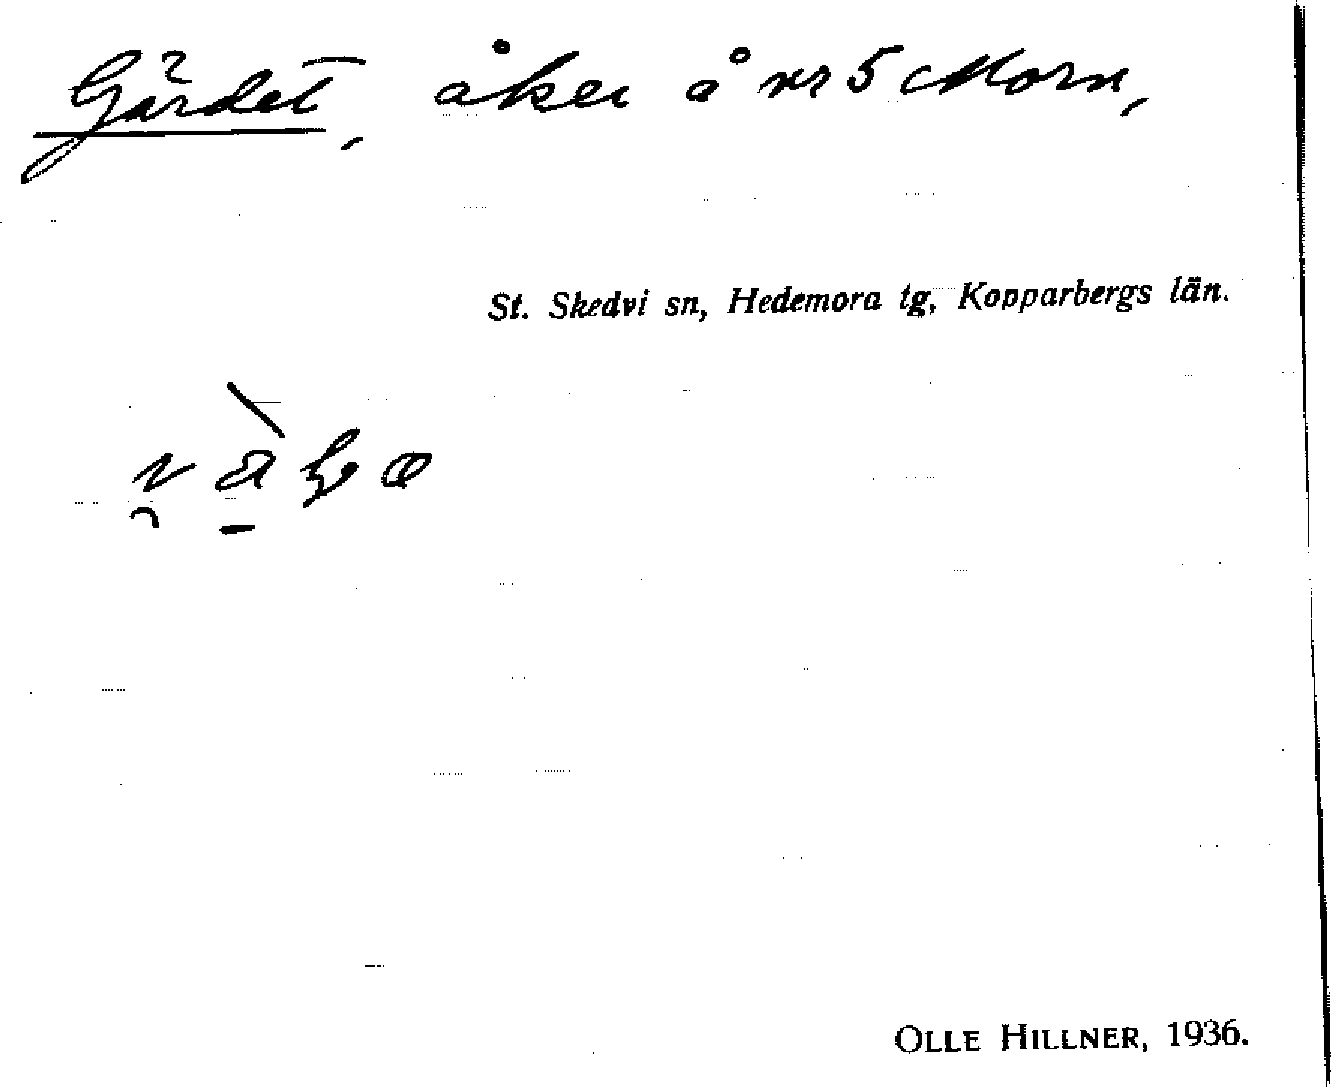 Gärdet, åker å nr 5 Morn,
St. Skedvi sn, Hedemora tg, Kopparbergs län.
OLLE HILLNER, 1936.